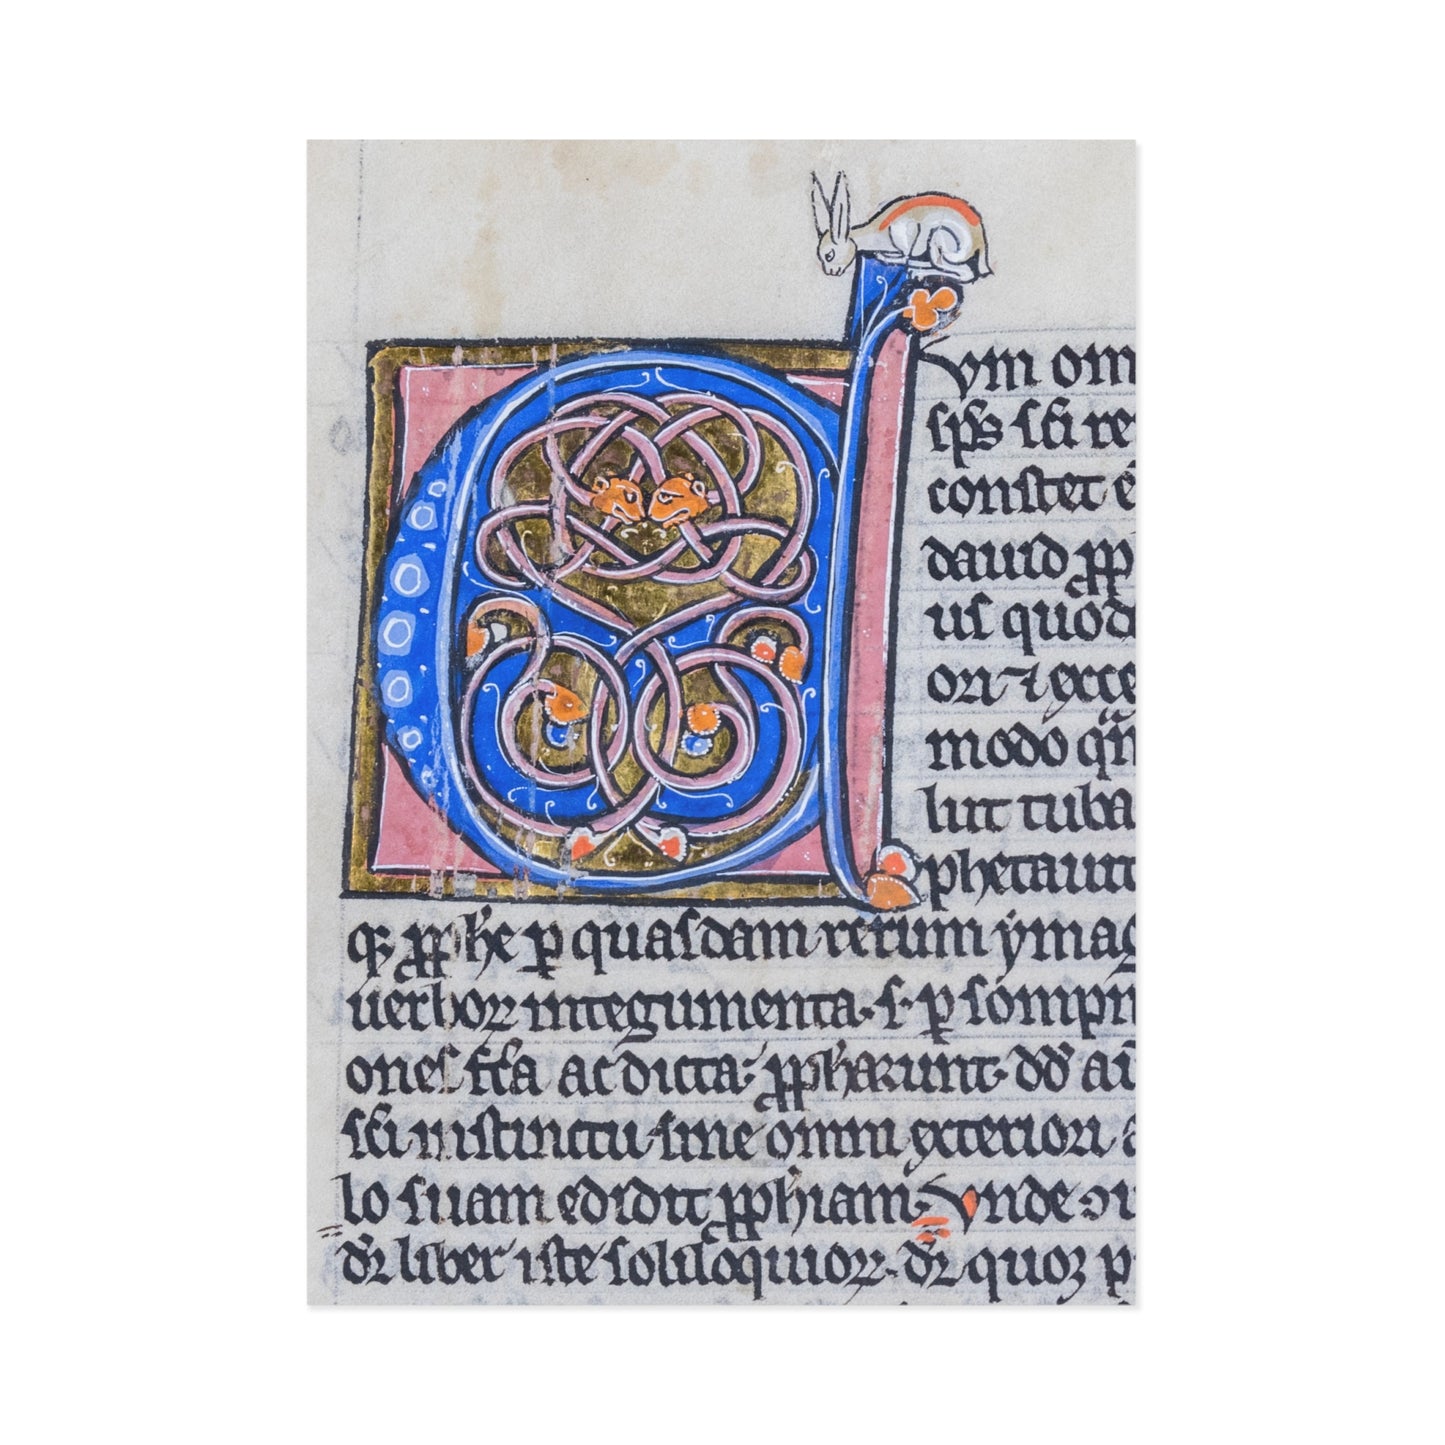 vm om
sps sci re
constet e
dauid pph
us quod
ori ⁊ exce
modo qm
lut tuba
phetauit
q; pph'e p quasdam rerum ymag
uerboꝝ integumenta. s. p sompn
ones fca ac dicta: ppharunt. dd au
sci instinctu sine omni exteriori a
lo suam edidit pphiam. Vnde
dr liber iste soliloquioꝝ. dr quoꝫ p